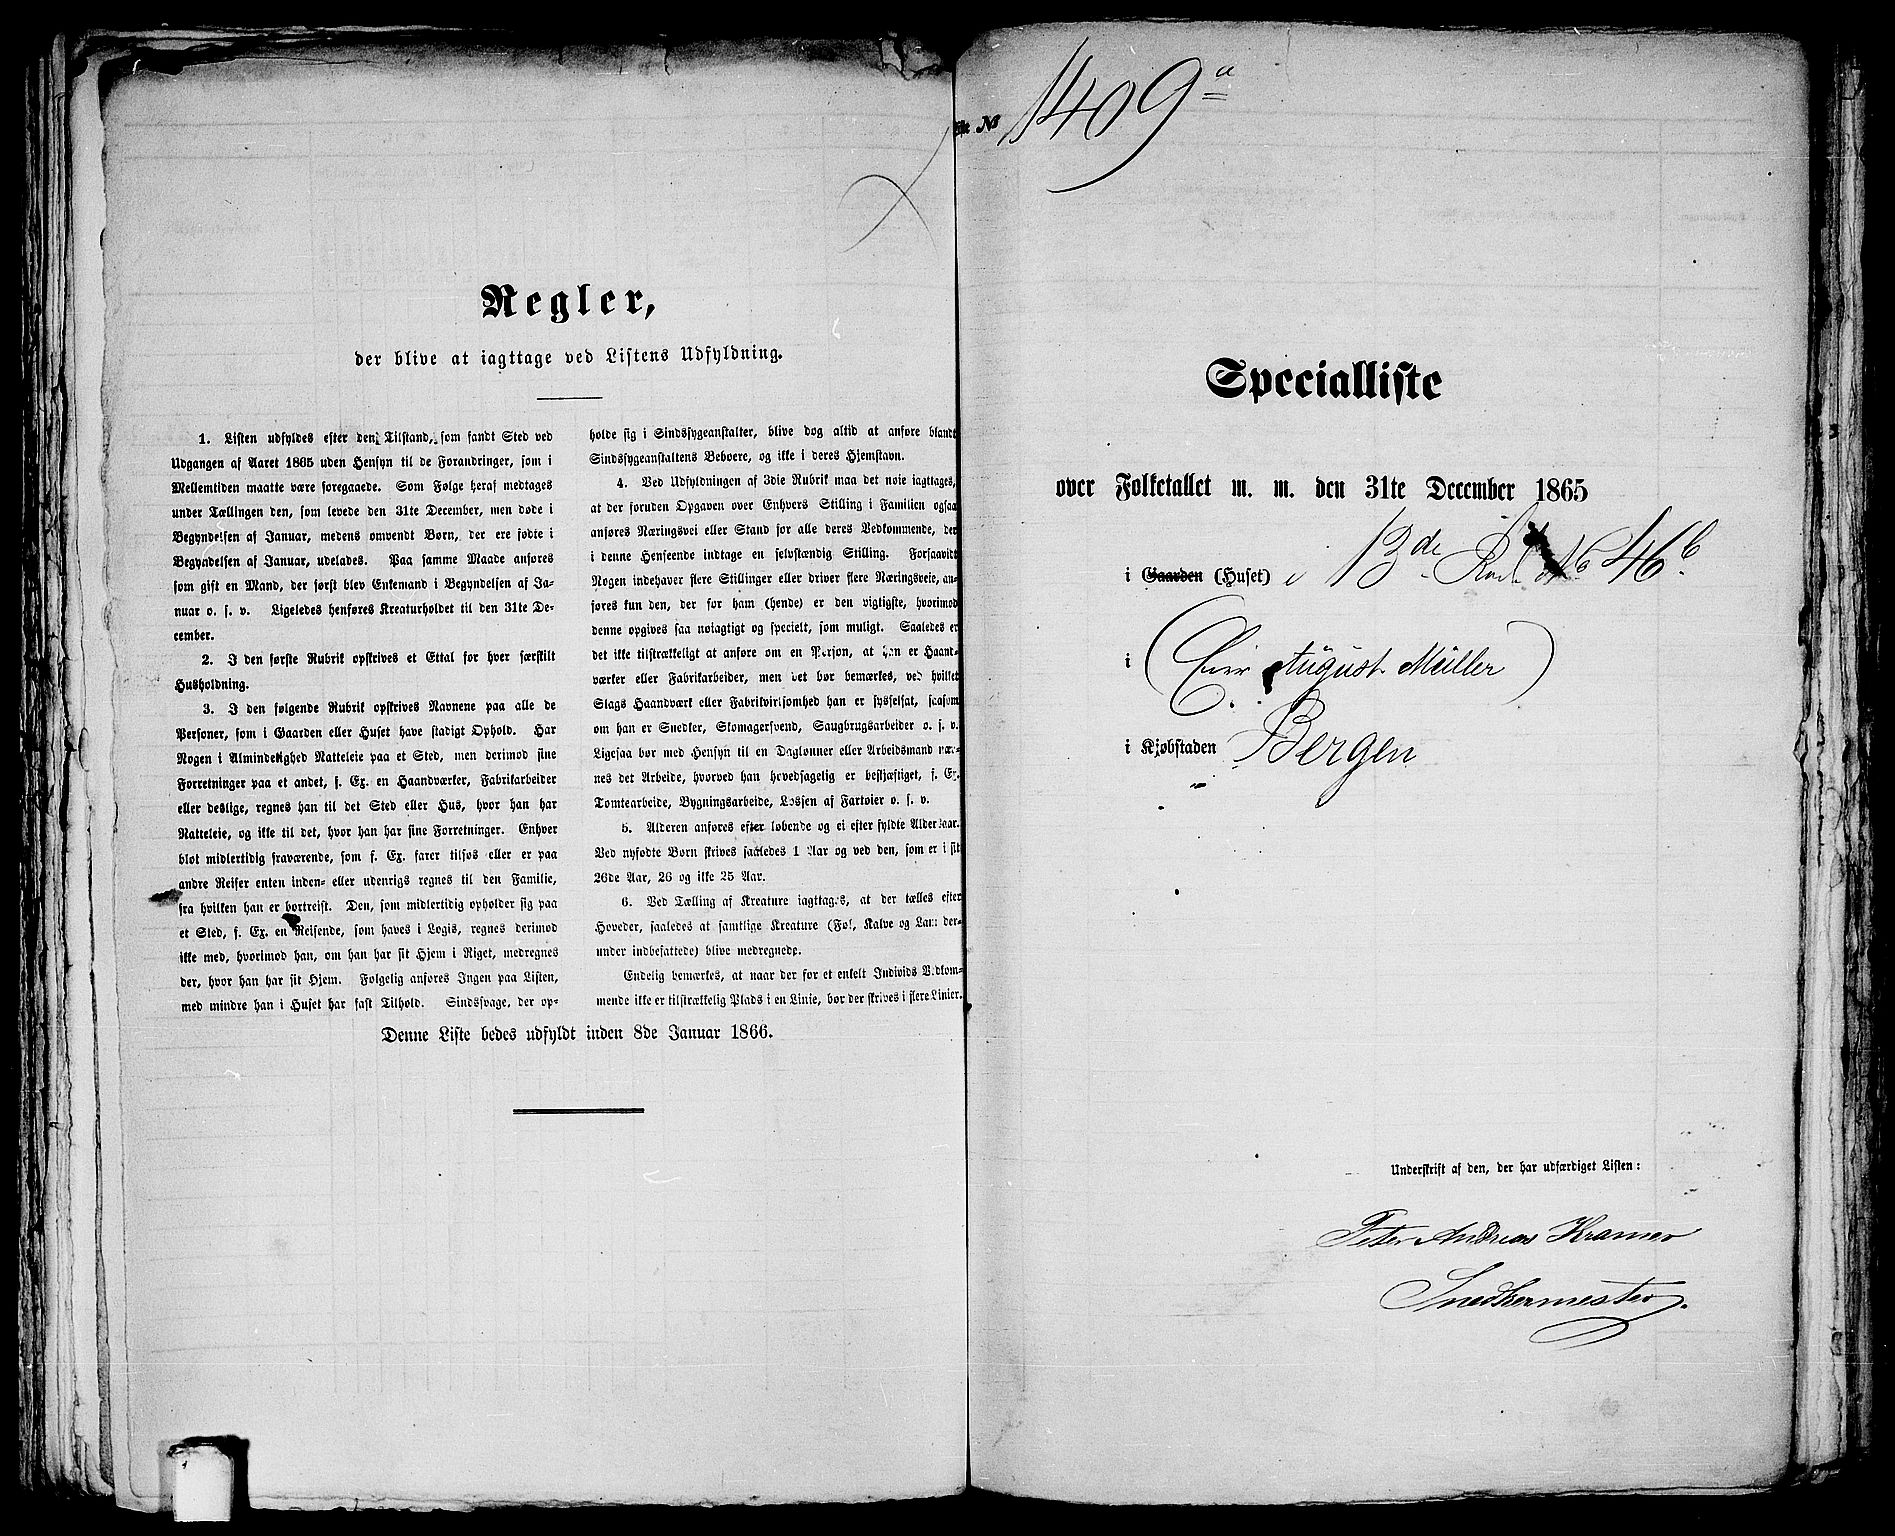 Regler,
der blive at iagttage ved Listens Udfyldning.
1. Listen udfyldes efter den Tilstand, som fandt Sted ved
Udgangen af Aaret 1865 uden Hensyn til de Forandringer, som i
Mellemtiden maatte være foregaaede. Som Følge heraf medtages
under Tællingen den, som levede den 31te December, men døde i
Begyndelsen af Januar, medens omvendt Børn, der ere fødte i
Begyndelsen af Januar, udelades. Paa samme Maade anføres
som gift en Mand, der først blev Enkemand i Begyndelsen af Ja-
nuar o. s. v. Ligeledes henføres Kreaturholdet til den 31te De-
cember.
2. I den første Rubrik opskrives et Ettal for hver særskilt
Husholdning.
3. I den følgende Rubrik opskrives Navnene paa alle de
Personer, som i Gaarden eller Huset have stadigt Ophold. Har
Nogen i Almindelighed Natteleie paa et Sted, men derimod sine
Forretninger paa et andet, f. Ex. en Haandværker, Fabrikarbeider
eller deslige, regnes han til det Sted eller Hus, hvor han har
Natteleie, og ikke til det, hvor han har sine Forretninger. Enhver
blot midlertidig fraværende, som f. Ex. farer tilsøs eller er paa
andre Reiser enten inden- eller udenrigs regnes til den Familie,
fra hvilken han er bortreist. Den, som midlertidig opholder sig paa
et Sted, f. Ex. en Reisende, som haves i Logis, regnes derimod
ikke med, hvorimod han, om han har sit Hjem i Riget, medregnes
der, hvor han har sit Hjem. Følgelig anføres Ingen paa Listen,
med mindre han i Huset har fast Tilhold. Sindssvage, der op-
holde sig i Sindssygeanstalter, blive dog altid at anføre blandt
Sindssygeanstaltens Beboere, og ikke i deres Hjemstavn.
4. Ved Udfyldningen af 3die Rubrik maa det nøie iagttages,
at der foruden Opgaven over Enhvers Stilling i Familien ogsaa
anføres Næringsvei eller Stand for alle deres Vedkommende, der
i denne Henseende indtage en selvstændig Stilling. Forsaavidt
Nogen indehaver flere Stillinger eller driver flere Næringsveie, an-
føres kun den, der for ham (hende) er den vigtigste, hvorimod
denne opgives saa nøiagtigt og specielt, som muligt. Saaledes er
det ikke tilstrækkeligt at anføre om en Person, at han er Haand-
værker eller Fabrikarbeider, men det bør bemærkes, ved hvilket
Slags Haandværk eller Fabrikvirksomhed han er sysselsat, saasom
om han er Snedker, Skomagersvend, Saugbrugsarbeider o. s. v.
Ligesaa bør med Hensyn til en Daglønner eller Arbeidsmand næv-
nes det Arbeide, hvorved han hovedsagelig er beskjæftiget, f. Ex.
Tomtearbeide, Bygningsarbeide, Lossen af Fartøier o. s. v.
5. Alderen anføres efter løbende og ei efter fyldte Alders aar.
Ved nyfødte Børn skrives saaledes 1 Aar og ved den, som er i sit
26de Aar, 26 og ikke 25 Aar.
6. Ved Tælling af Kreature iagttages, at der tælles efter
Hoveder, saaledes at samtlige Kreature (Føl, Kalve og Lam der-
under indbefattede) blive medregnede.
Endelig bemærkes, at naar der for et enkelt Individs Vedkom-
mende ikke er tilstrækkelig Plads i en Linie, bør der skrives i flere Linier.
Denne Liste bedes udfyldt inden 8de Januar 1866.
№ 1409a
Specialliste
over Folketallet m. m. den 31te December 1865
i Gaarden (Huset) i 13de No 46b
i (Eier August Müller)
i Kjøbstaden Bergen
Underskrift af den, der har udfærdiget Listen:
Peter Andreas Kramer
Snedkermester.